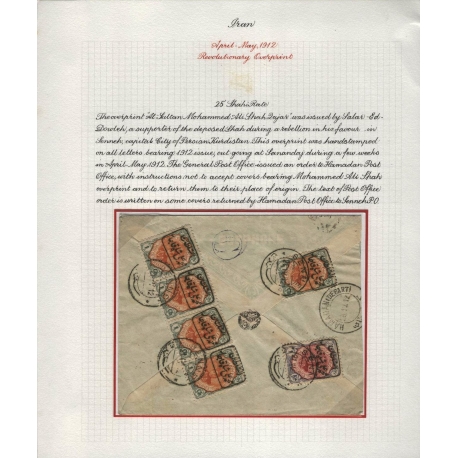 Iran
April-May, 1912
Revolutionary Overprint
25 Shahi Rate
The overprint "Al Sultan Mohammed Ali Shah Qajar" was issued by Salar-Ed-
Dowleh, a supporter of the deposed Shah during a rebellion in his favour in
Senneh, capital City of Persian Kurdistan. This overprint was handstamped
on all letters bearing 1912 issue, out going at Sanandaj during a few weeks
in April-May, 1912. The General Post Office issued an order to Hamadan Post
Office, with instructions not to accept covers bearing Mohammed Ali Shah
overprint and to return them to their place of origin. The text of Post Office
order is written on some covers returned by Hamadan Post Office to Senneh P.O.